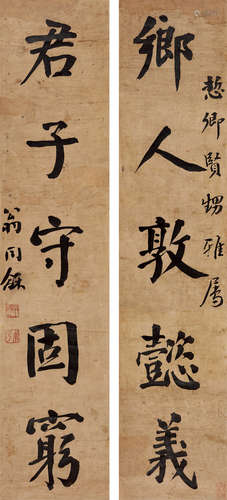 愨卿賢甥雅屬
鄉人敦懿義
君子守固窮
翁同龢